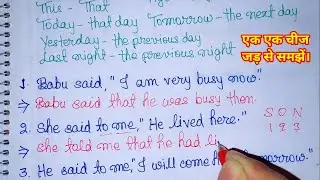 This - That
Today - that day Tomorrow - the next day
Yesterday - the previous day
Last night - the previous night
एक एक चीज
जड़ से समझें।
1. Babu said, "I am very busy now."
⇒ Babu said that he was busy then.
2. She said to me, "He lived here."
S O N
1 2 3
⇒ she told me that he had li
3. He said to me, "I will come
orrow."